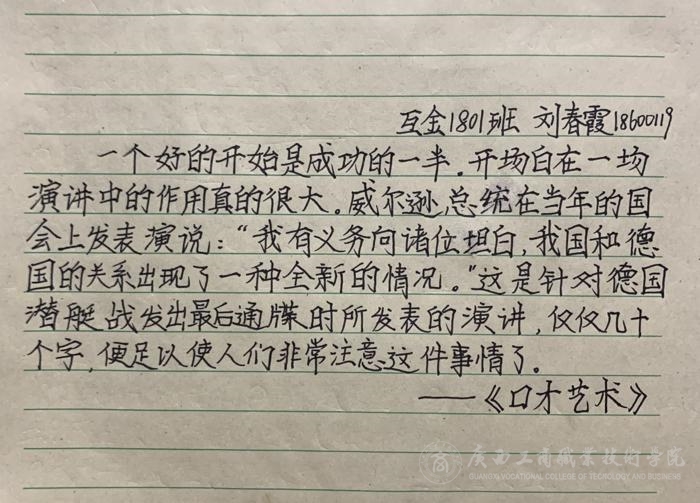 互金1801班 刘春霞18600119
一个好的开始是成功的一半.开场白在一场
演讲中的作用真的很大。威尔逊总统在当年的国
会上发表演说：“我有义务向诸位坦白,我国和德
国的关系出现了一种全新的情况。”这是针对德国
潜艇战发出最后通牒时所发表的演讲,仅仅几十
个字,便足以使人们非常注意这件事情了。
——《口才艺术》
广西工商职业技术学院
GUANGXI VOCATIONAL COLLEGE OF TECHNOLOGY AND BUSINESS